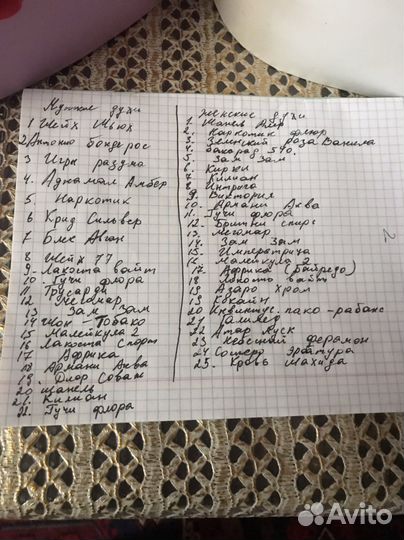 Мужские духи
1 Шейх Шьюх
2 Антонио бондерос
3 Игры разума
4. Аджмал Амбер
5 Наркотик
6 Крид Сильвер
7 Блек Авган
8 Шейх 77
9. Лакоста вайт
10. Гучи флора
11. Трусарди
12 Мегамар
13 Зам Зам
14 Шон-Тобако
15 Малекула 2
16 Лакоста Спорт
17 Африка
18 Армани Аква
19. Диор Соваж
20 Шанель
21. Килиан
22. Гучи флора
женские духи
1. Шанель
2. Наркотик флюр
3. Зелинский роза Ванила
4. бакарад 540.
5. Зам Зам.
6. Кирки
7 Килиан
8 Интрига
9 Виктория
10. Армани Аква
11. Гучи флора.
12 Бритни спирс
13. Мегомар
14. Зам Зам
15. Императрица
16 Малекула 2
17. Африка (байредо)
18 Лакоста вайт
19 Азаро Хром
19 Кокаин
20 Инвиктус. пако-рабанс
22 Атар Муск
23 Небесный ферамон
25. Кровь Шахида
2
Avito